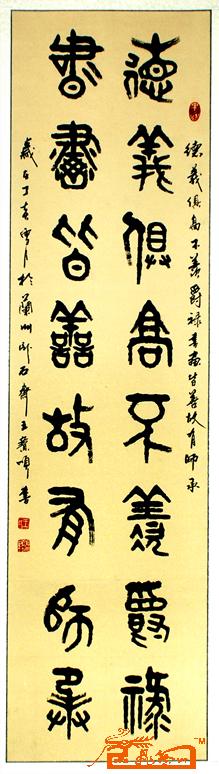 德義俱高不羨爵祿
書畫皆善故有師承
德義俱高不羨爵祿書畫皆善故有師承
歲在丁亥
於蘭州
石齋王
書